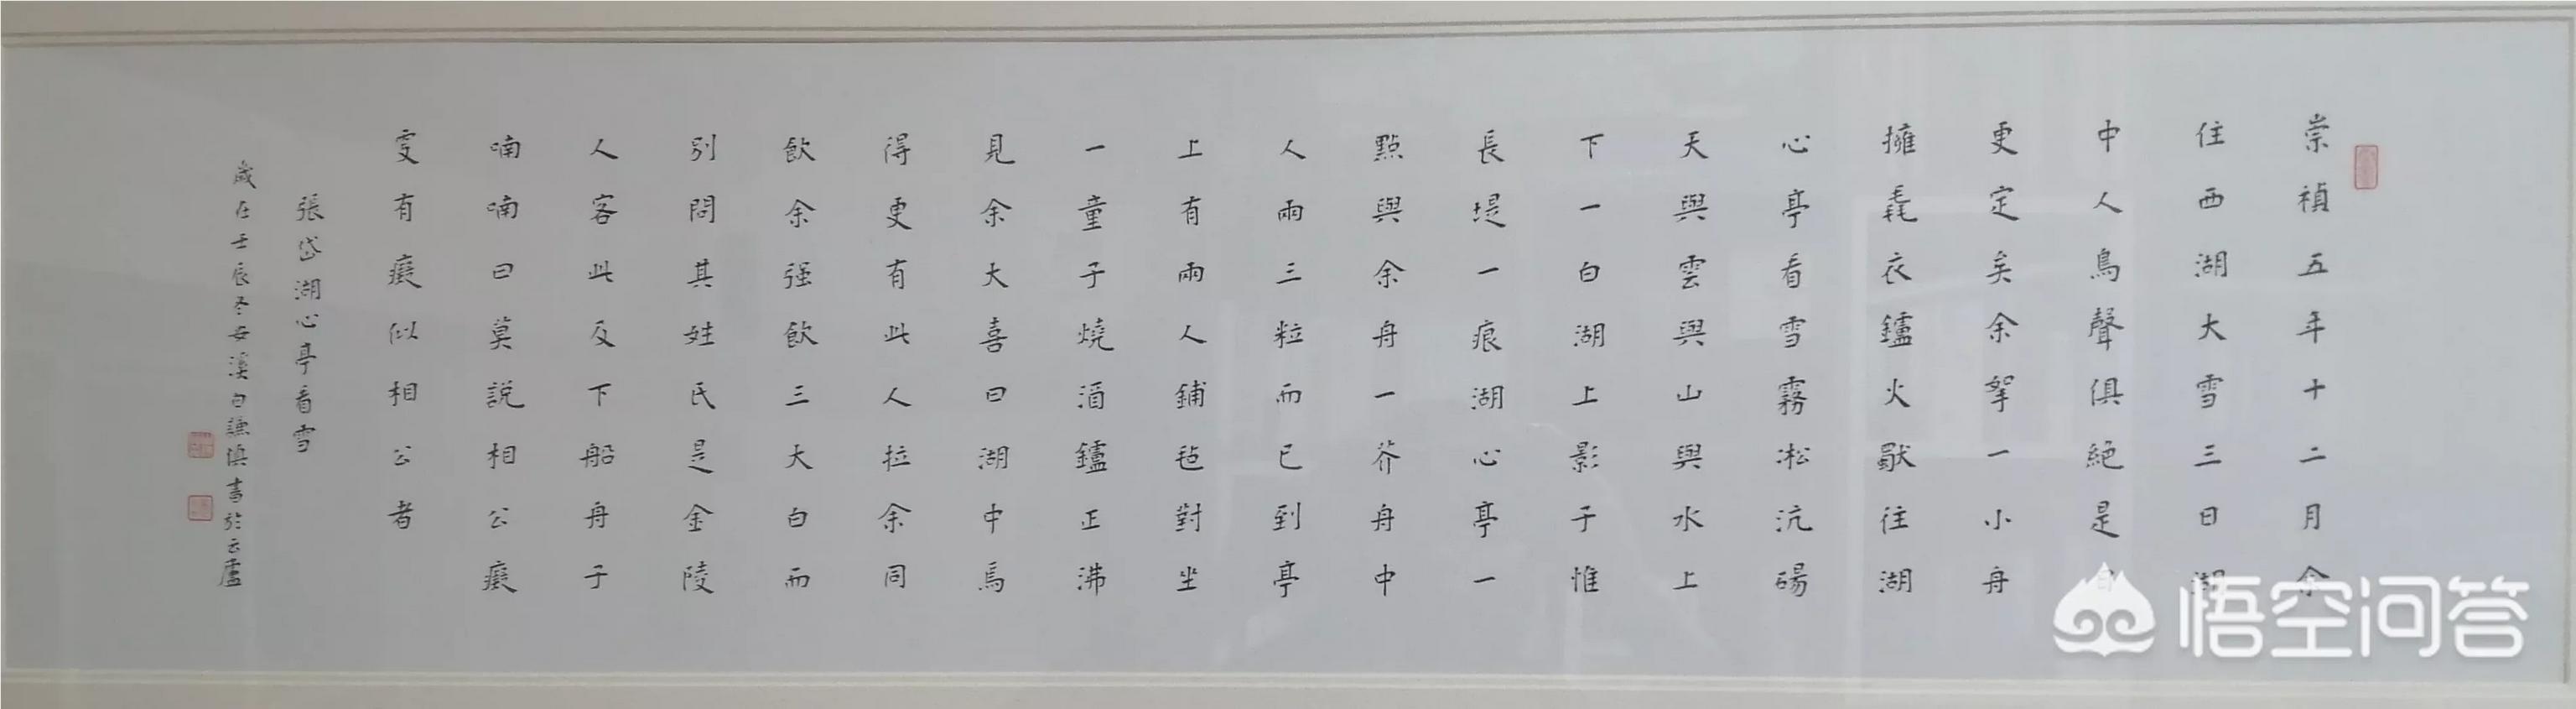 崇禎五年十二月余
住西湖大雪三日湖
中人鳥聲俱絕是日
更定矣余拏一小舟
擁毳衣鑪火獸往湖
心亭看雪霧凇沆碭
天與雲與山與水上
下一白湖上影子惟
長堤一痕湖心亭一
點與余舟一芥舟中
人兩三粒而已到亭
上有兩人鋪毡對坐
一童子燒酒鑪正沸
見余大喜曰湖中焉
得更有此人拉余同
飲余强飲三大白而
別問其姓氏是金陵
人客此及下船舟子
喃喃曰莫說相公癡
更有癡似相公者
張岱湖心亭看雪
歲在壬辰冬安溪白謙慎書於云廬
悟空问答